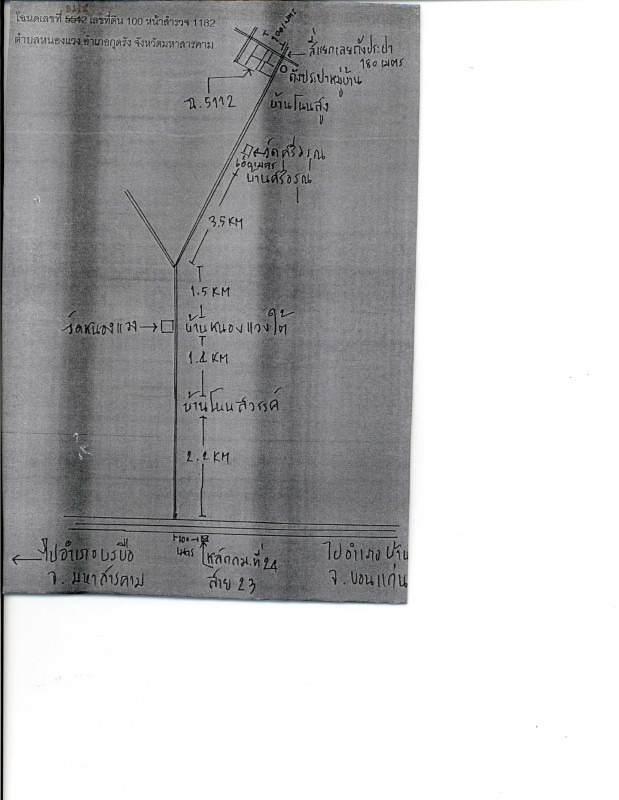 5112
โฉนดเลขที่ 5642 เลขที่ดิน 100 หน้าสำรวจ 1182
ตำบลหนองแวง อำเภอกุดรัง จังหวัดมหาสารคาม
100 เมตร
สี่แยกเลยถังประปา
180 เมตร
ถังประปาหมู่บ้าน
ฉ.5112
บ้านโนนสูง
วัดศรีอรุณ
เมตร
บ้านศรีอรุณ
3.5 KM
1.5 KM
วัดหนองแวง
บ้านหนองแวงใต้
KM
บ้านโนนสวรรค์
KM
ไปอำเภอบรบือ
จ. มหาสารคาม
เมตร
หลักกม.ที่ 24
สาย 23
ไปอำเภอ บ้าน
จ. ขอนแก่น